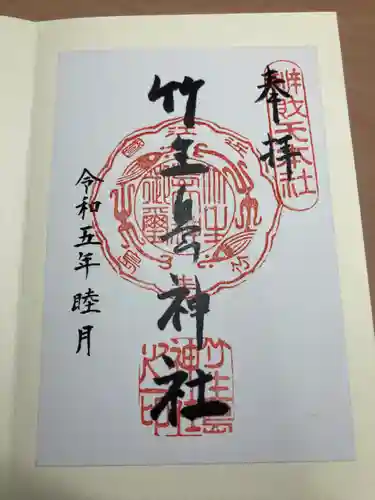 奉拝
辨財天本社
竹生島神社
竹生島神社之印
令和五年睦月